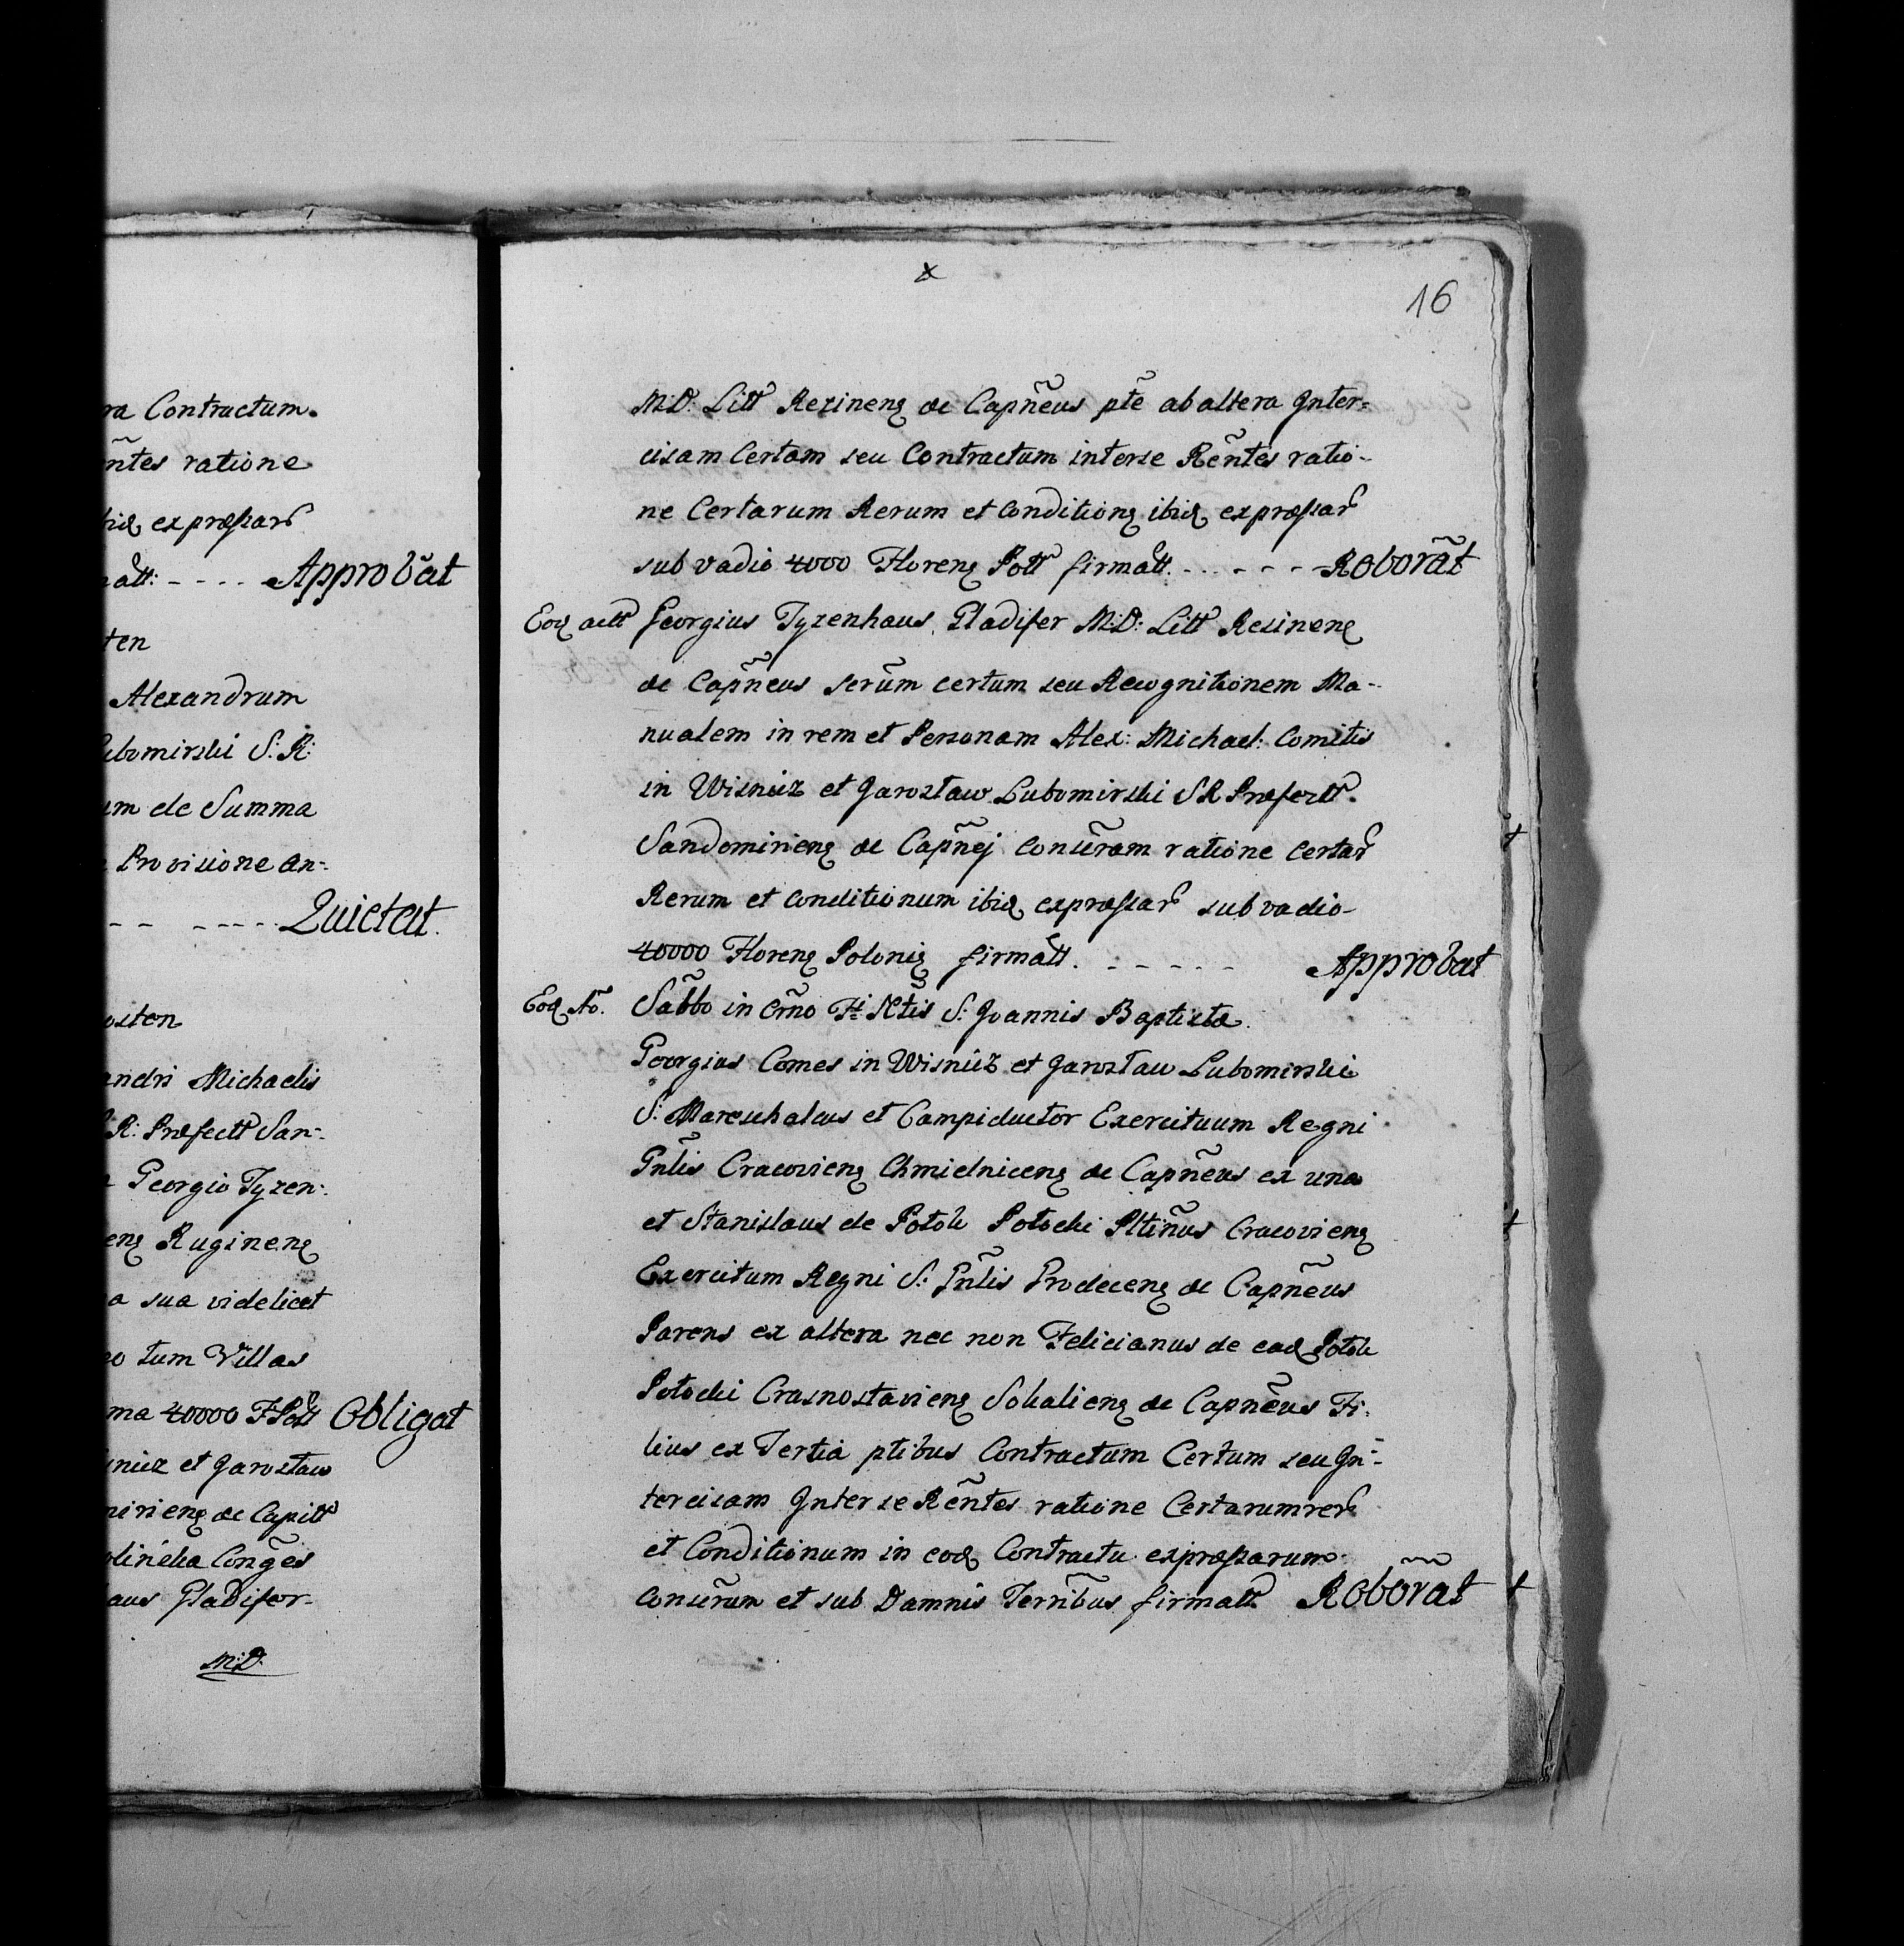 ra Contractum.
ñtes ratione
ibiq expræssar
att: - - - - Approbat
ten
Alexandrum
ubomirski S: R:
um de Summa
Provisione an=
- - - - - - Quietat.
osten
andri Michaelis
R: Præfectt San=
Georgio Tyzen=
enq Rugineng
a sua videlicet
eo tum Villas
ma 40000 F Poll Obligat
isnicz et Jarosław
mirienq de Capitt
Cong̃es
aus Gladifer
M:D:
x
16
M:D: Litt Rezinenq de Capñeus pt̃e ab altera Inter=
cisam Certam seu Contractum interse Rẽntes ratio=
ne Certarum Rerum et Conditionq ibiq expræssar
sub vadio 4000 Florenq Poll firmatt. - - - - - Roborãt
Eoq actt Georgius Tyzenhaus Gladifer M:D: Litt Rezinenq
de Capñeus scrũm certum seu Recognitionem Ma=
nualem in rem et Personam Alex: Michael: Comitis
in Wisnicz et Jarosław Lubomirski S R Præfectt.
Sandomirienq de Capñej conscr̃am ratione certar
Rerum et conditionum ibiq expræssar sub vadio
40000 Florenq Poloniq firmatt. - - - - - Approbat
Eoq Ao. Sãbbo in Cr̃no Fi Nt̃is S: Joannis Baptistæ.
Georgius Comes in Wisnicz et Jarosław Lubomirski
S: Mareschalcus et Campiductor Exercituum Regni
Gñlis Cracovienq Chmielnicenq de Capñeus ex una
et Stanislaus de Potok Potocki Pltiñus Cracovienq
Exercitum Regni S: Gñlis Prodecenq de Capñeus
Parens ex altera nec non Felicianus de eaq Potok
Potocki Crasnostavienq Sokalienq de Capñeus Fi=
lius ex Tertia ptibus Contractum Certum seu In=
tercisam Inter se Rẽntes ratione Certarum rer
et Conditionum in eoq Contractu expræssarum
conscr̃um et sub Damnis Terr̃ibus firmatt Roborãt